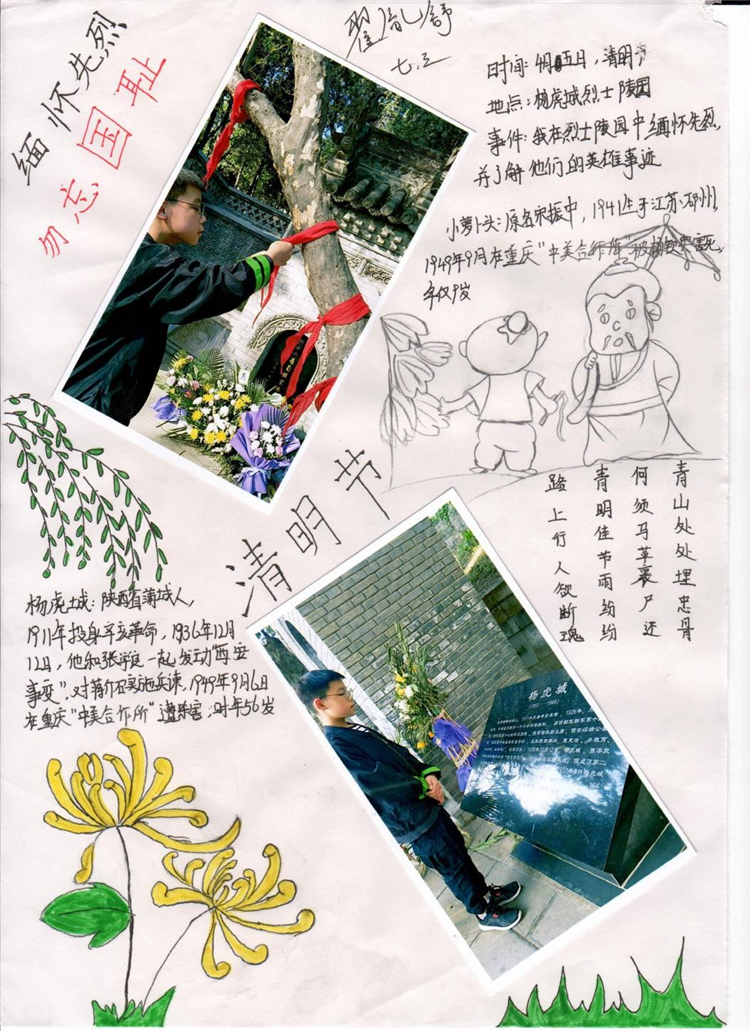 缅怀先烈
勿忘国耻
时间:4月五日,清明节
地点:杨虎城烈士陵园
事件:我在烈士陵园中缅怀先烈,
并了解他们的英雄事迹
小萝卜头:原名宋振中,1941生于江苏邳州,
1949年9月在重庆"中美合作所"被害死,
年仅9岁
青山处处埋忠骨
何须马革裹尸还
青明佳节雨纷纷
路上行人欲断魂
清明节
杨虎城:陕西省蒲城人,
1911年投身辛亥革命,1936年12月
12日,他和张学良一起发动"西安
事变",对蒋介石实施兵谏,1949年9月6日
在重庆"中美合作所"遭杀害,时年56岁
杨虎城